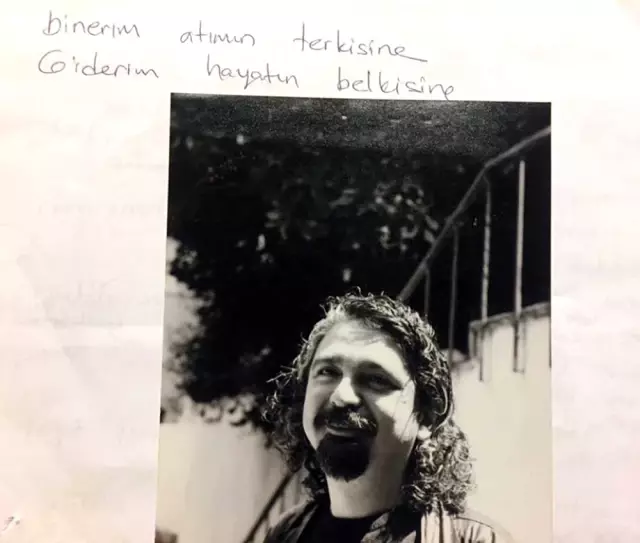 binerim atımın terkisine
Giderim hayatın belkisine